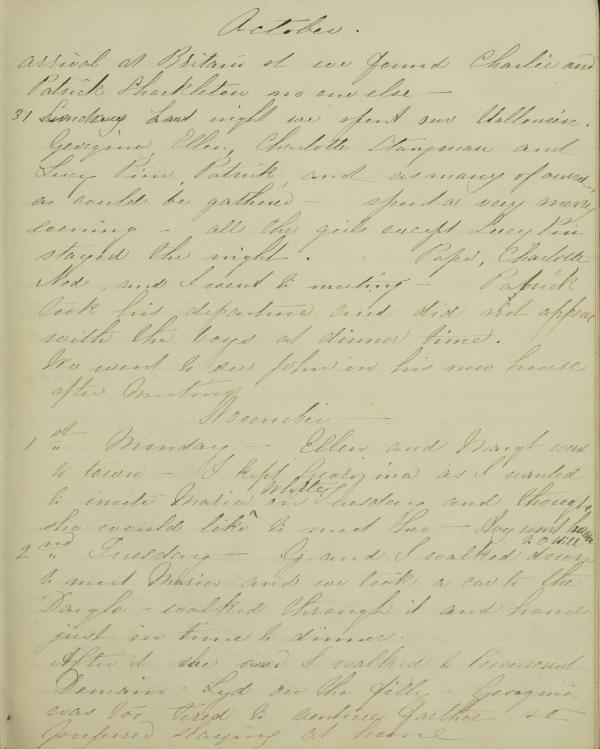 October.
arrival at Britain st we found Charlie and
Patrick Shackleton no one else —
31 Sunday Last night we spent our Halloween.
Georgina, Ellen, Charlotte Stangman and
Lucy Pim, Patrick, and as many of our
as could be gathered — spent a very merry
evening — all the girls except Lucy Pim
stayed the night. Papa, Charlotte
Ned, and I went to meeting — Patrick
took his departure and did not appear
with the boys at dinner time.
We went to see John in his new house
after Meeting
November —
1st Monday — Ellen and Margt went
to town — I kept Georgina as I wanted
to invite Maria White on Tuesday and thought
she would like to meet her —
2nd Tuesday — G. and I walked down
to meet Maria and we took a car to the
Dargle — walked through it and home
just in time to dinner.
After it she and I walked to
Domain — Lyd on the filly — Georgina
was too tired to venture further so
preferred staying at home